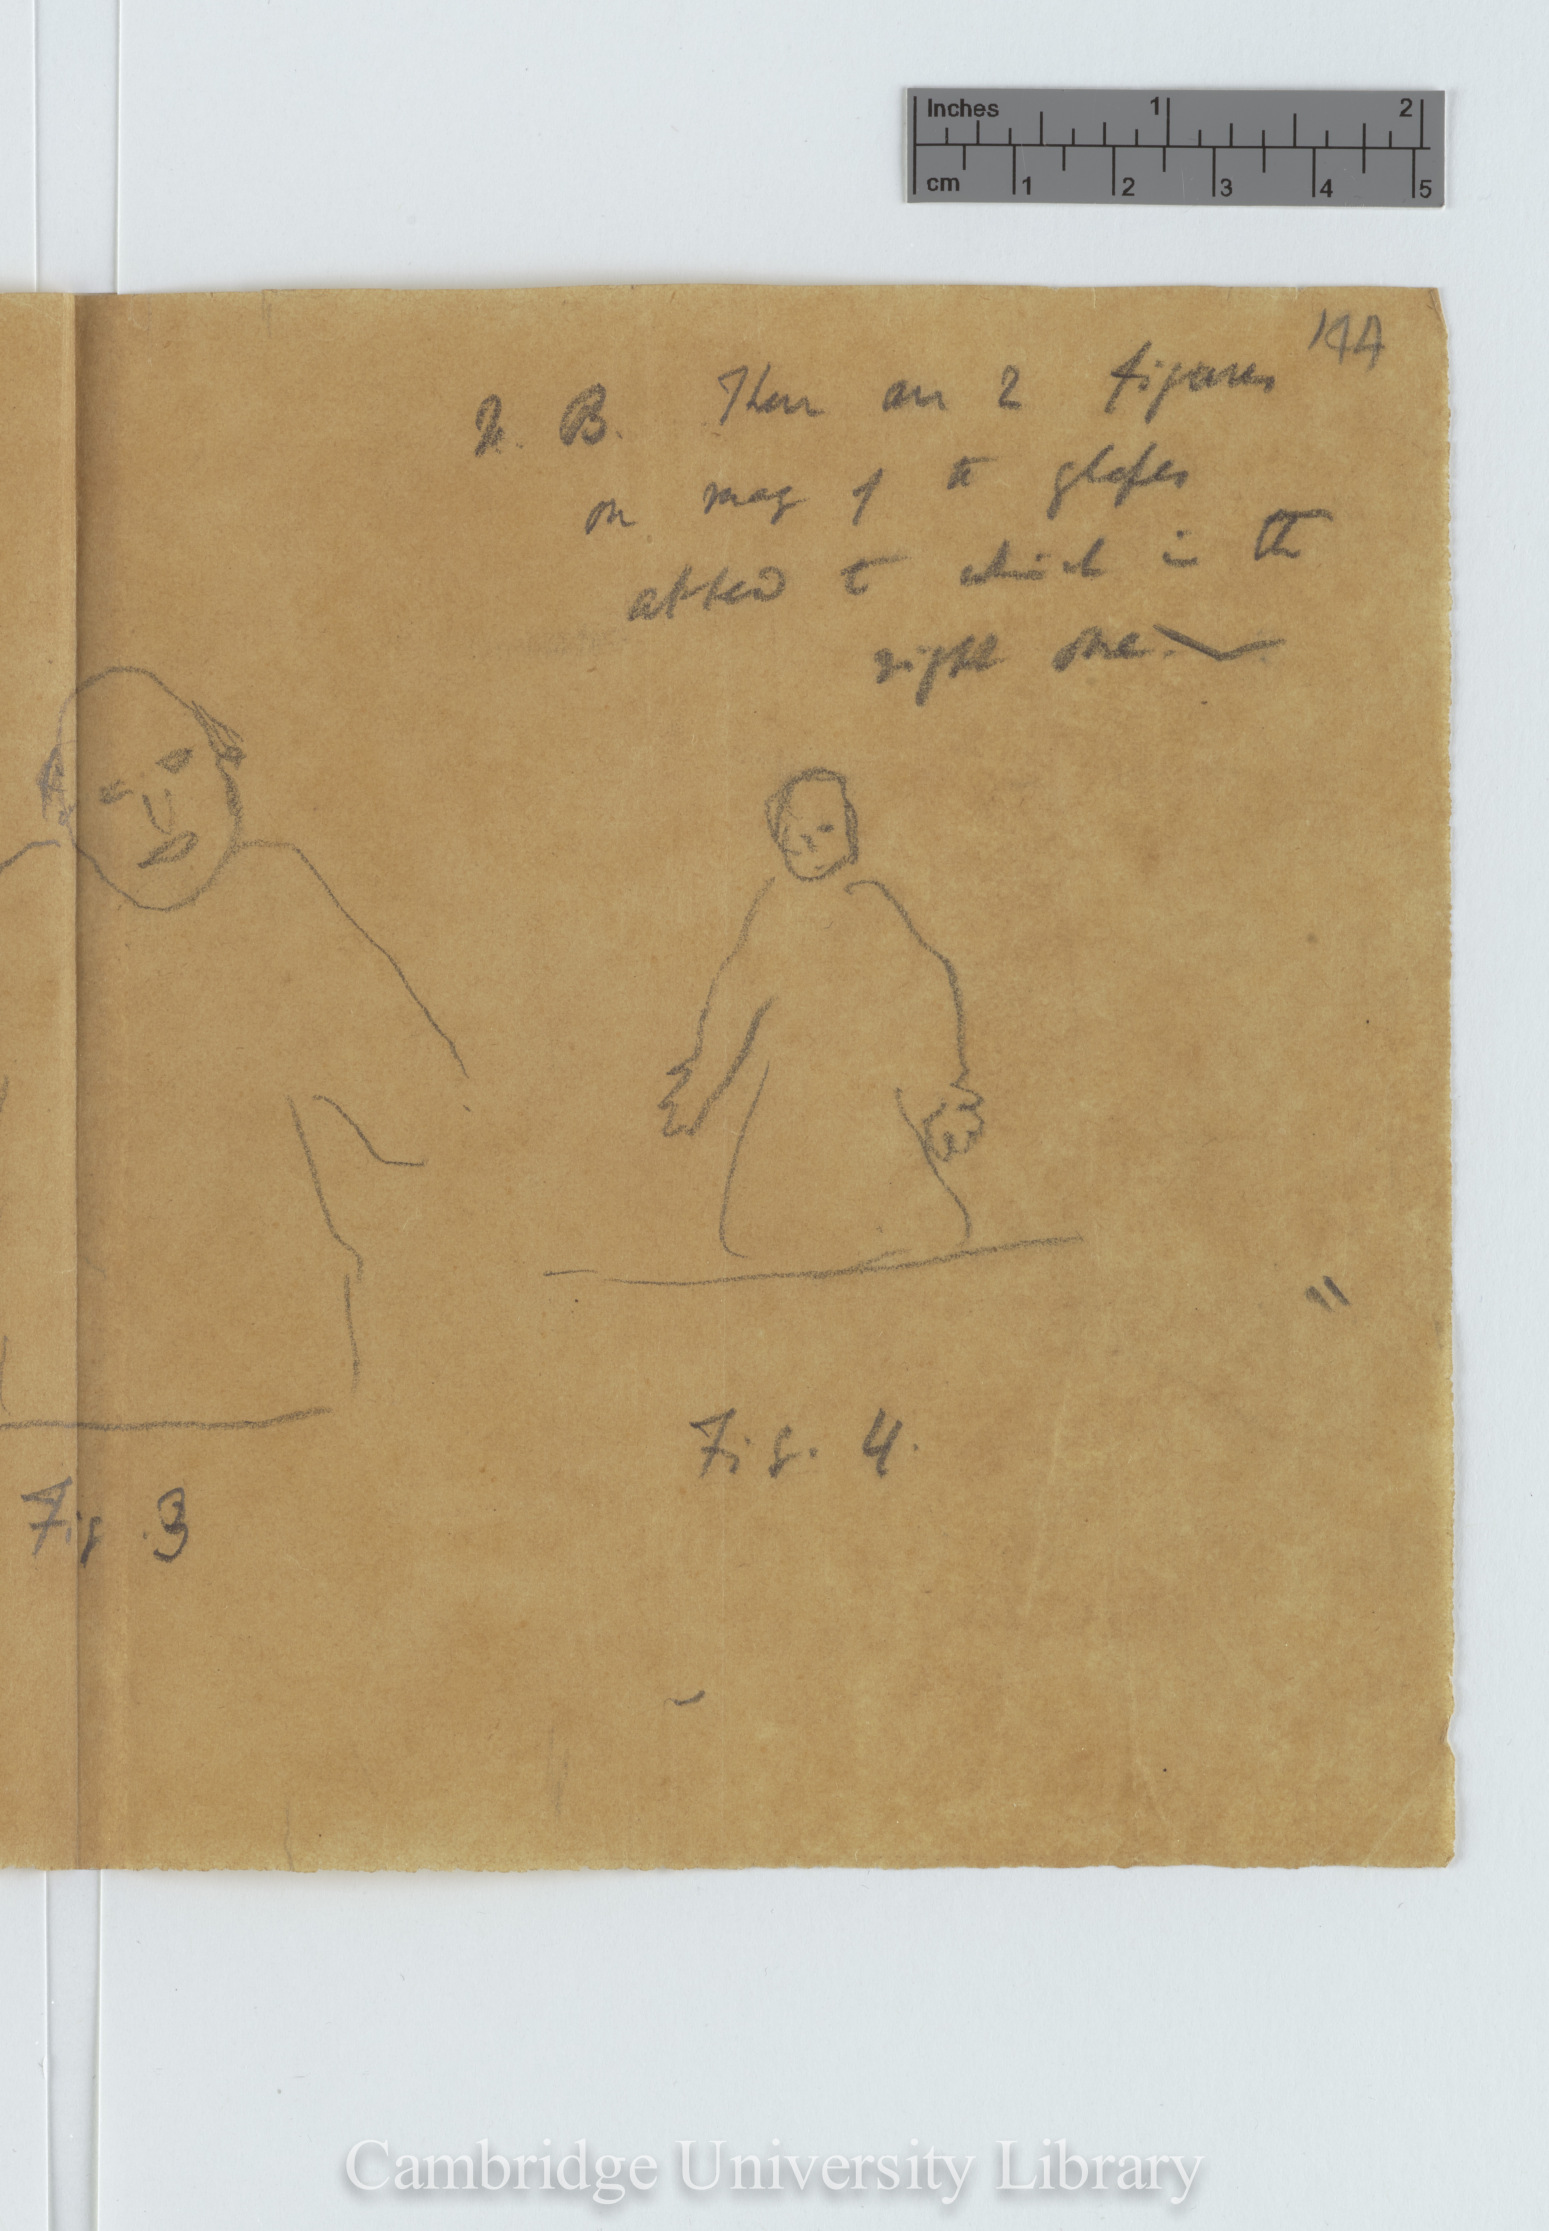 Inches 1 2
cm 1 2 3 4 5
14A
N. B. There are 2 figures
on many of the glasses
attend to which is the
right one.
Fig. 4.
Fig. 3
Cambridge University Library